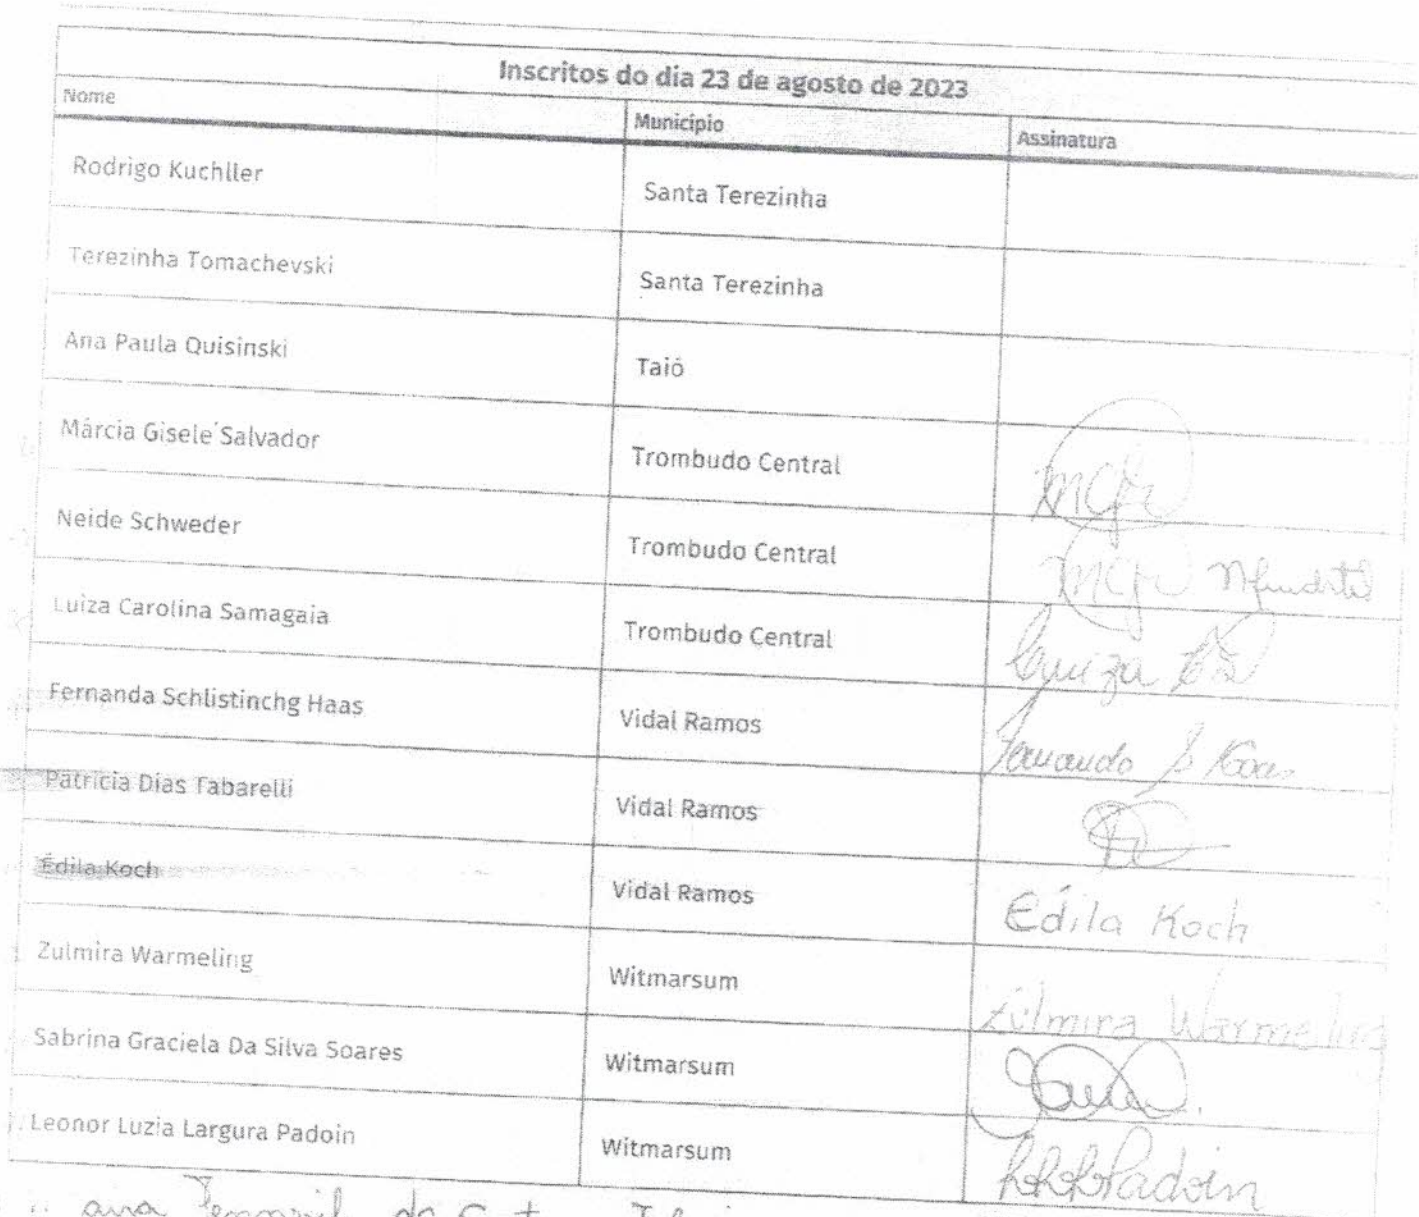 Inscritos do dia 23 de agosto de 2023
Nome Município Assinatura
Rodrigo Kuchller Santa Terezinha
Terezinha Tomachevski Santa Terezinha
Ana Paula Quisinski Taió
Márcia Gisele Salvador Trombudo Central
Neide Schweder Trombudo Central
Luiza Carolina Samagaia Trombudo Central Luiza
Fernanda Schlistinchg Haas Vidal Ramos Fernanda S Haas
Patrícia Dias Tabarelli Vidal Ramos
Édila Koch Vidal Ramos Édila Koch
Zulmira Warmeling Witmarsum Zulmira Warmeling
Sabrina Graciela Da Silva Soares Witmarsum
Leonor Luzia Largura Padoin Witmarsum LLLPadoin
ana